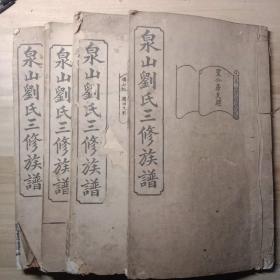 泉山劉氏三修族譜
泉山劉氏三修族譜
泉山劉氏三修族譜
泉山劉氏三修族譜